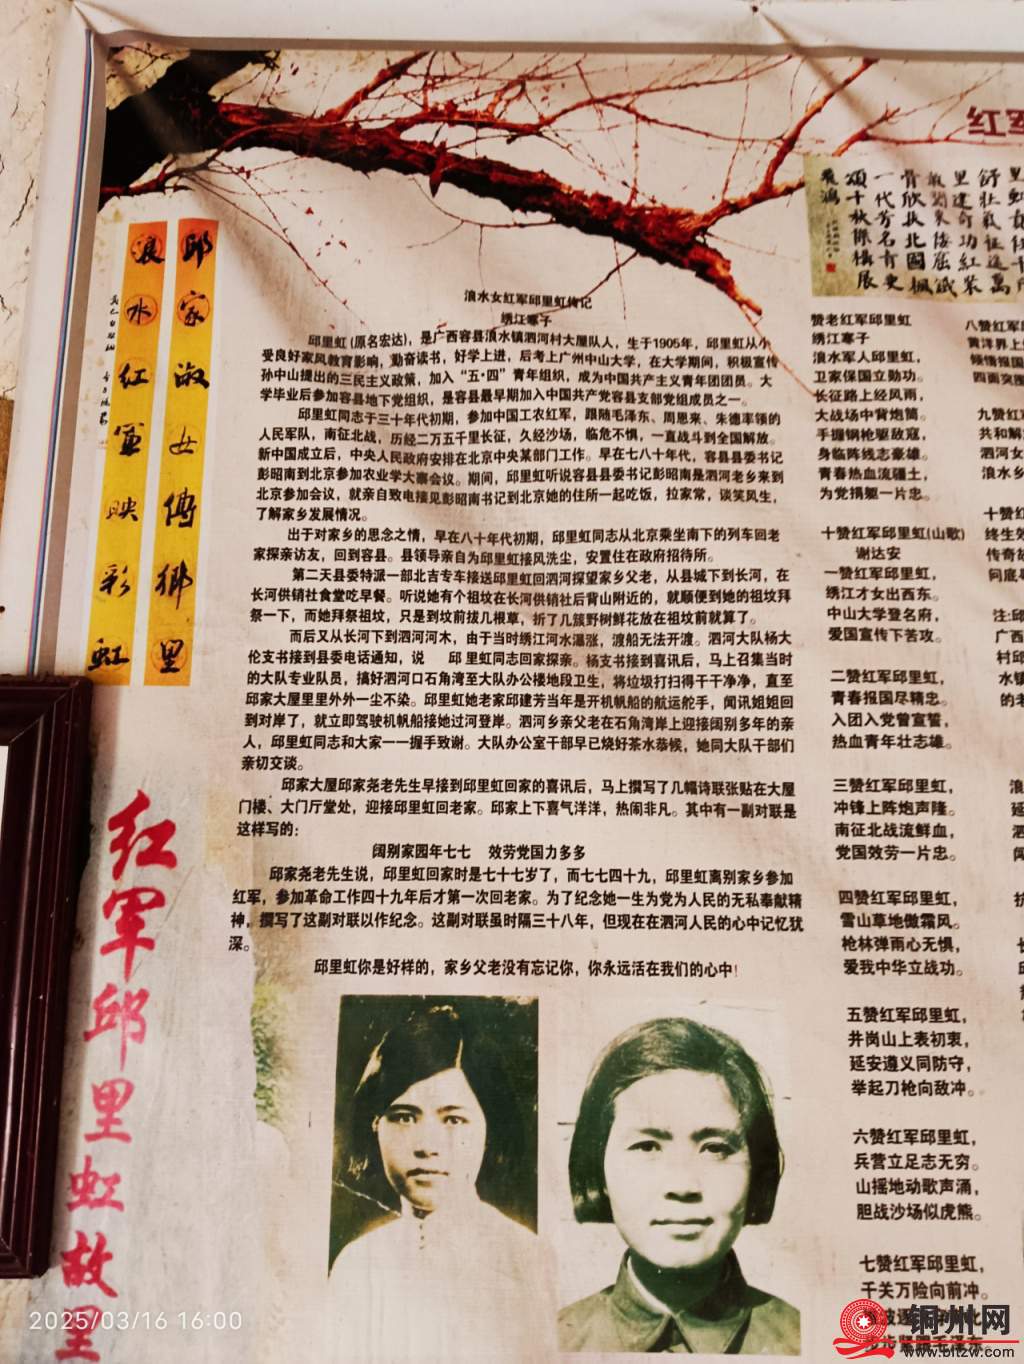 邱家淑女傳鄉里
浪水紅軍映彩虹
红军邱里虹故里
浪水女红军邱里虹传记
绣江寒子
邱里虹(原名宏达)，是广西容县浪水镇泗河村大屋队人，生于1905年，邱里虹从小
受良好家风教育影响，勤奋读书，好学上进，后考上广州中山大学，在大学期间，积极宣传
孙中山提出的三民主义政策，加入“五·四”青年组织，成为中国共产主义青年团团员。大
学毕业后参加容县地下党组织，是容县最早期加入中国共产党容县支部党组成员之一。
邱里虹同志于三十年代初期，参加中国工农红军，跟随毛泽东、周恩来、朱德率领的
人民军队，南征北战，历经二万五千里长征，久经沙场，临危不惧，一直战斗到全国解放。
新中国成立后，中央人民政府安排在北京中央某部门工作。早在七八十年代，容县县委书记
彭昭南到北京参加农业学大寨会议。期间，邱里虹听说容县县委书记彭昭南是泗河老乡来到
北京参加会议，就亲自致电接见彭昭南书记到北京她的住所一起吃饭，拉家常，谈笑风生，
了解家乡发展情况。
出于对家乡的思念之情，早在八十年代初期，邱里虹同志从北京乘坐南下的列车回老
家探亲访友，回到容县。县领导亲自为邱里虹接风洗尘，安置住在政府招待所。
第二天县委特派一部北吉专车接送邱里虹回泗河探望家乡父老，从县城下到长河，在
长河供销社食堂吃早餐。听说她有个祖坟在长河供销社后背山附近的，就顺便到她的祖坟拜
祭一下，而她拜祭祖坟，只是到坟前拔几根草，折了几簇野树鲜花放在祖坟前就算了。
而后又从长河下到泗河河木，由于当时绣江河水濑涨，渡船无法开渡。泗河大队杨大
伦支书接到县委电话通知，说 邱里虹同志回家探亲。杨支书接到喜讯后，马上召集当时
的大队专业队员，搞好泗河口石角湾至大队办公楼地段卫生，将垃圾打扫得干干净净，直至
邱家大屋里里外外一尘不染。邱里虹她老家邱建芳当年是开机帆船的航运舵手，闻讯姐姐回
到对岸了，就立即驾驶机帆船接她过河登岸。泗河乡亲父老在石角湾岸上迎接阔别多年的亲
人，邱里虹同志和大家一一握手致谢。大队办公室干部早已烧好茶水恭候，她同大队干部们
亲切交谈。
邱家大屋邱家尧老先生早接到邱里虹回家的喜讯后，马上撰写了几幅诗联张贴在大屋
门楼、大门厅堂处，迎接邱里虹回老家。邱家上下喜气洋洋，热闹非凡。其中有一副对联是
这样写的：
阔别家园年七七 效劳党国力多多
邱家尧老先生说，邱里虹回家时是七十七岁了，而七七四十九，邱里虹离别家乡参加
红军，参加革命工作四十九年后才第一次回老家。为了纪念她一生为党为人民的无私奉献精
神，撰写了这副对联以作纪念。这副对联虽时隔三十八年，但现在在泗河人民的心中记忆犹
深。
邱里虹你是好样的，家乡父老没有忘记你，你永远活在我们的心中！
红军
赞老红军邱里虹
绣江寒子
浪水军人邱里虹，
卫家保国立勋功。
长征路上经风雨，
大战场中背炮筒。
手握钢枪驱敌寇，
身临阵线志豪雄。
青春热血流疆土，
为党捐躯一片忠。
十赞红军邱里虹(山歌)
谢达安
一赞红军邱里虹，
绣江才女出西东。
中山大学登名府，
爱国宣传下苦攻。
二赞红军邱里虹，
青春报国尽精忠。
入团入党曾宣誓，
热血青年壮志雄。
三赞红军邱里虹，
冲锋上阵炮声隆。
南征北战流鲜血，
党国效劳一片忠。
四赞红军邱里虹，
雪山草地傲霜风。
枪林弹雨心无惧，
爱我中华立战功。
五赞红军邱里虹，
井岗山上表初衷。
延安遵义同防守，
举起刀枪向敌冲。
六赞红军邱里虹，
兵营立足志无穷。
山摇地动歌声涌，
胆战沙场似虎熊。
七赞红军邱里虹，
千关万险向前冲。
八赞红军
黄洋界上
倾情报国
四面突围
九赞红军
共和解
泗河女
浪水乡
十赞红
终生效
传奇故
问底
注:邱
广西
村邱
水镇
的老
2025/03/16 16:00
铜州网
www.bltzw.com